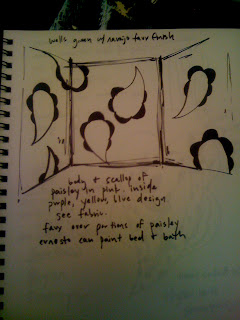 walls green w/ navajo faux finish
body + scallop of
paisley in pink. inside
purple, yellow, blue design.
see fabric.
faux over portions of paisley
ernesto can paint bed + bath